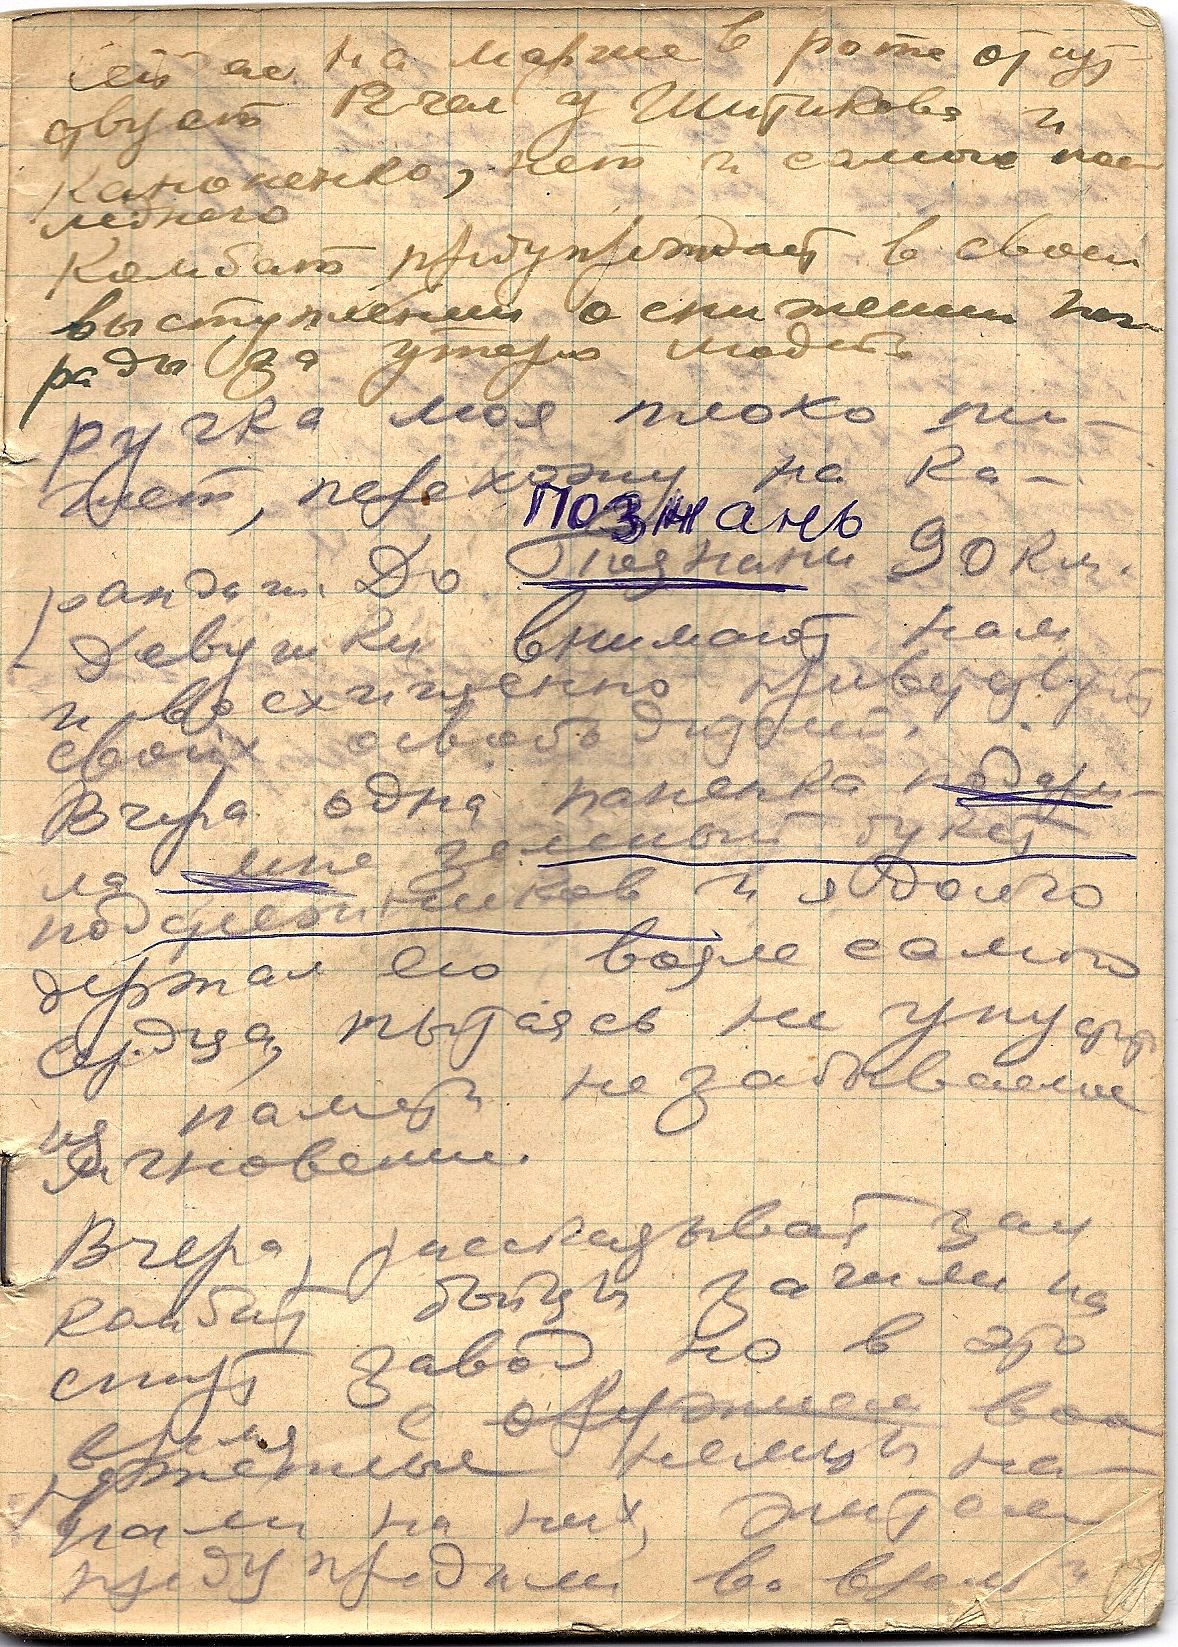 на марше в роте отсут-
ствует 12 чел у Шитикова и
Кононенко, нет и самого пос
леднего
Комбат предупреждает в своем
выступлении о снижении наг-
рады за утерю людей
ручка моя плохо пи-
шет, перехожу на ка-
Познань
рандаш. До Познани 90 км.
Девушки внимают нам
и восхищенно приветствуют
своих освободителей.
Вчера одна паненка подари-
ла мне зеленый букет
подснежников и я долго
держал его возле самого
сердца, пытаясь не упустить
из памяти незабываемые
мгновения.
Вчера, рассказывает зам
комбат, бойцы зашли на
спирт завод, но в это
время с оружием воо
руженные немцы на-
пали на них, жители
предупредили во время и